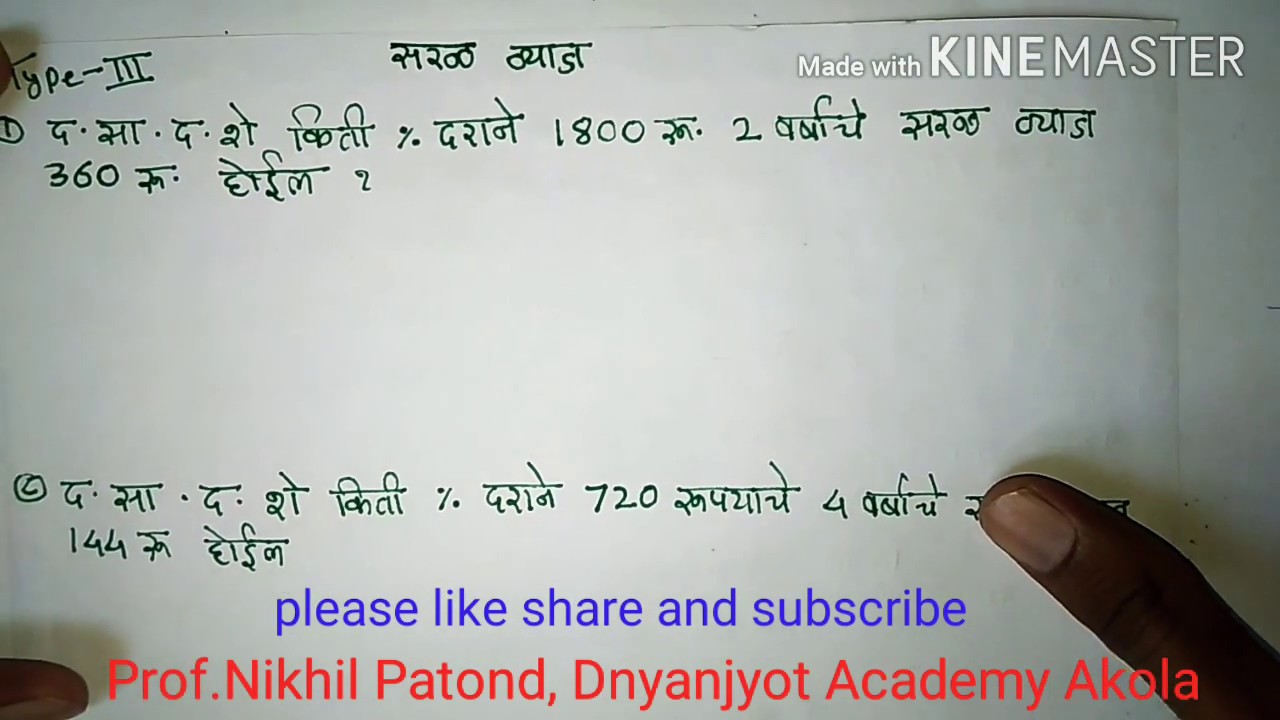 Type-III सरळ व्याज
Made with KINEMASTER
① द. सा. द. शे किती % दराने 1800 रू. 2 वर्षाचे सरळ व्याज
360 रू. होईल ?
② द. सा. द. शे किती % दराने 720 रूपयाचे 4 वर्षाचे
144 रू होईल
please like share and subscribe
Prof.Nikhil Patond, Dnyanjyot Academy Akola